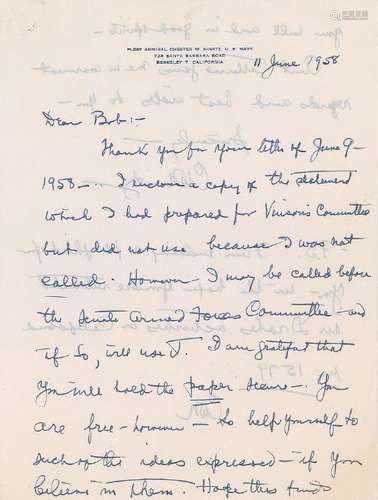 FLEET ADMIRAL CHESTER W. NIMITZ, U. S. NAVY
728 SANTA BARBARA ROAD
BERKELEY 7, CALIFORNIA
11 June 1958
Dear Bob:-
Thank you for your letter of June 9-
1958-. I enclose a copy of the statement
which I had prepared for Vinson's Committee
but did not use because I was not
called. However- I may be called before
the Senate Armed Forces Committee- and
if so, will use it. I am gratified that
you will hold the paper secure-. You
are free- however- to help yourself to
such of the ideas expressed- if you
believe in them. Hope this finds